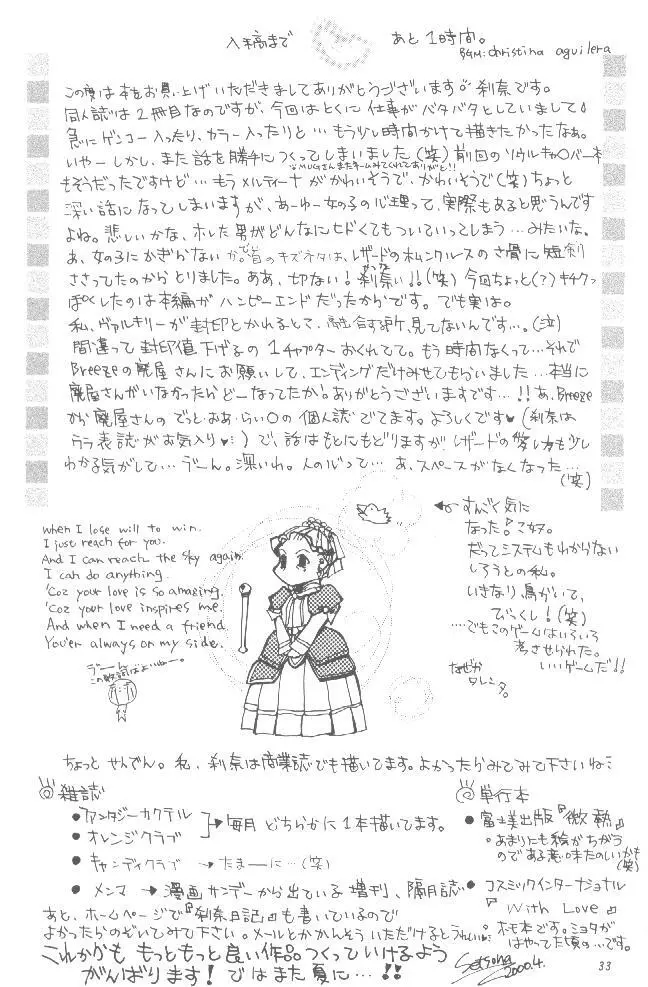 入稿まで あと1時間。
BGM: christina aguilera
この度は本をお買い上げいただきましてありがとうございます。刹奈です。
同人誌は2冊目なのですが、今回はとくに仕事がバタバタとしていまして
急にゲンコー入ったり、カラー入ったりと…もう少し時間かけて描きたかったなぁ。
いやーしかし、また話を勝手につくってしまいました(笑)前回のソウルキャ○バー本
もそうだったですけど…もうメルティーナがかわいそうで、かわいそうで(笑)ちょっと
深い話になってしまいますが、あーゆー女の子の心理って、実際もあると思うんです
よね。悲しいかな、ホレた男がどんなにヒドくてもついていってしまう…みたいな。
あ、女の子にかぎらないか。で首のキズネタは、レザードのホムンクルスの 骨に短剣
ささってたのからとりました。ああ、切ない!刹奈い!!(笑)今回ちょっと(?)キチクっ
ぽくしたのは本編がハッピーエンドだったからです。でも実は。
私、ヴァルキリーが封印とかれるとこ、融合する所、見てないんです…。(泣)
間違って封印値下げるの1チャプターおくれてて。もう時間なくって…それで
Breezeの廃屋さんにお願いして、エンディングだけみせてもらいました…本当に
廃屋さんがいなかったらどーなってたか!ありがとうございますです…!!あ、Breeze
から廃屋さんのでっと・おあ・らい○の個人誌でてます。よろしくです♥(刹奈は
ウラ表誌がお気入り♥)で、話はもとにもどりますがレザードの 少し
わかる気がして…うーん。深いわ。人の心って…あ、スペースがなくなった…
(笑)
when I lose will to win.
I just reach for you.
And I can reach the sky again.
I can do anything.
'Coz your love is so amazing.
'Coz your love inspires me.
And when I need a friend
You'er always on my side.
この歌詞はよいねー。
←すんごく気に
なった『こ奴。
だってシステムもわからない
しろうとの私。
いきなり鳥がいて、
びっくし!(笑)
…でもこのゲームはいろいろ
考させられた。
いいゲームだ!!
なぜか
ちょっとせんでん。私、刹奈は商業誌でも描いてます。よかったらみてみて下さいね
◎雑誌
●ファンタジーカクテル
●オレンジクラブ
→毎月どちらかに1本描いてます。
●キャンディクラブ →たまーに…(笑)
●メンマ →漫画サンデーから出ている増刊、隔月誌
◎単行本
●富士美出版『微熱』
あまりにも絵がちがう
のである意味たのしいかも
(笑)
●コスミックインターナショナル
『With Love』
ホモ本です。ミヨタが
はやってた頃の…です。
あと、ホームページで『刹奈日記』も書いているので
よかったらのぞいてみて下さい。メールとかかんそういただけるとうれしい
これからももっともっと良い作品つくっていけるよう
がんばります!ではまた夏に…!!
Setsuna
2000.4.
33